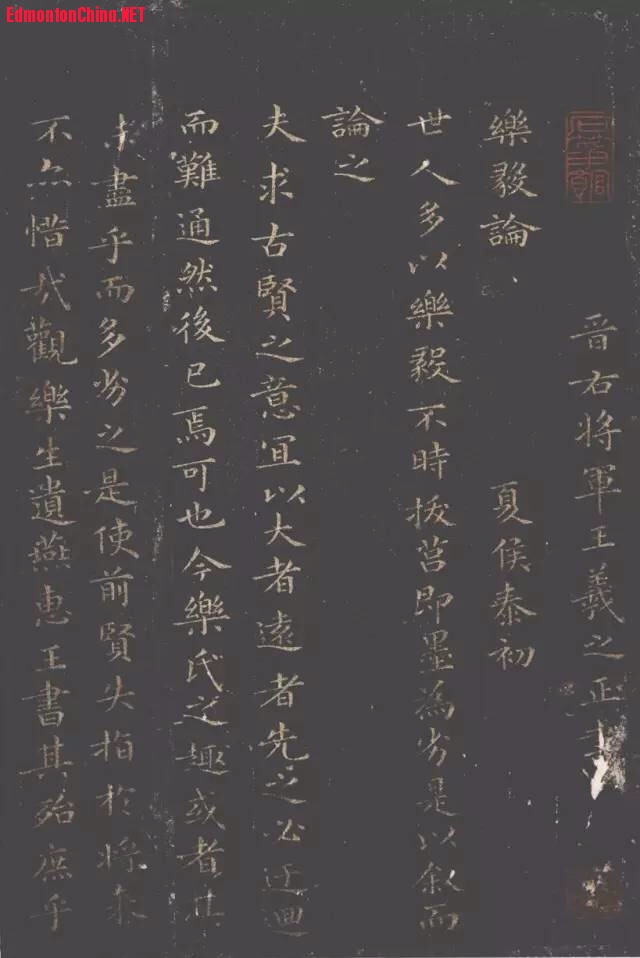 EdmontonChina.NET
晋右将軍王羲之正書
樂毅論 夏侯泰初
世人多以樂毅不時拔莒即墨為劣是以叙而
論之
夫求古賢之意宜以大者遠者先之必迂迴
而難通然後已焉可也今樂氏之趣或者其
未盡乎而多劣之是使前賢失指於将来
不亦惜哉觀樂生遺燕惠王書其殆庶乎